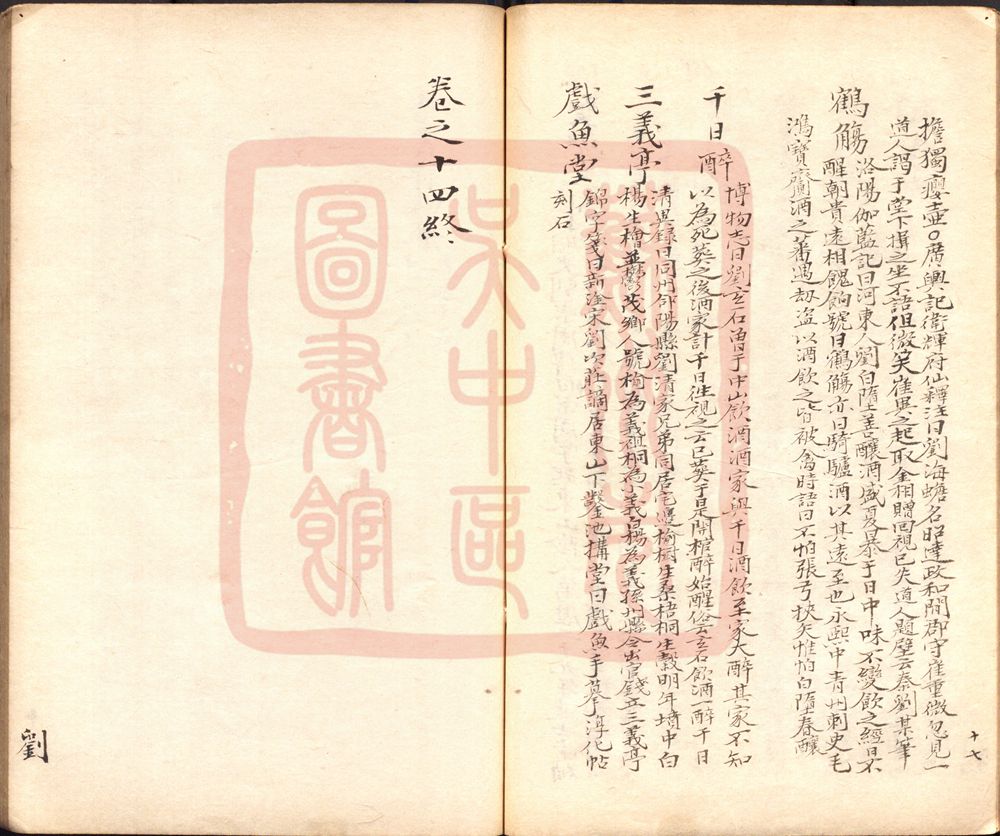 擔獨瘿壺○廣輿記衛輝府仙釋注曰劉海蟾名昭遠政和間郡守崔重微忽見一
道人謁于堂下揖之坐不語但微笑崔異之起取金相贈回視已失道人題壁云秦劉某筆
鶴觴
洛陽伽藍記曰河東人劉白墮善釀酒盛夏暴于日中味不變飲之經月不
醒朝貴遠相餽餉號曰鶴觴亦曰騎驢酒以其遠至也永熙中青州刺史毛
鴻賓齎酒之蕃遇劫盗以酒飲之皆被禽時語曰不怕張弓挾矢惟怕白墮春釀
千日醉
博物志曰劉玄石曾于中山飲酒酒家與千日酒飲至家大醉其家不知
以為死葬之後酒家計千日徃視之云已葬于是開棺醉始醒俗云玄石飲酒一醉千日
三義亭
清異錄曰同州郃陽縣劉清家兄弟同居宅邊榆樹生桑梧桐生穀明年墳中白
楊生檜並鬱茂鄉人號榆為義祖桐為小義白楊為義孫州縣令出官錢立三義亭
戲魚堂
錦字箋曰新淦宋劉次莊謫居東山下鑿池搆堂曰戲魚手摹淳化帖
刻石
十七
卷之十四終
劉
吳中區
圖書館